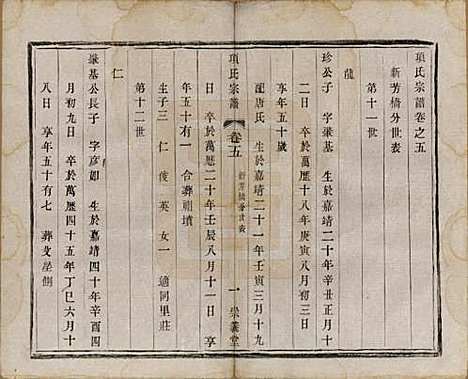 項氏宗譜卷之五
新芳橋分世表
第十一世
龍
珍公子 字肇基 生於嘉靖二十年辛丑正月十
二日 卒於萬歷十八年庚寅八月初三日
享年五十歲
配唐氏 生於嘉靖二十一年壬寅三月十九
項氏宗譜 卷五 新芳橋分世表 一 崇義堂
日 卒於萬歷二十年壬辰八月十一日 享
年五十有一 合葬祖墳
生子三 仁 俊 英 女一 適同里莊
第十二世
仁
肇基公長子 字彥如 生於嘉靖四十年辛酉四
月初九日 卒於萬歷四十五年丁巳六月十
八日 享年五十有七 葬父塋側